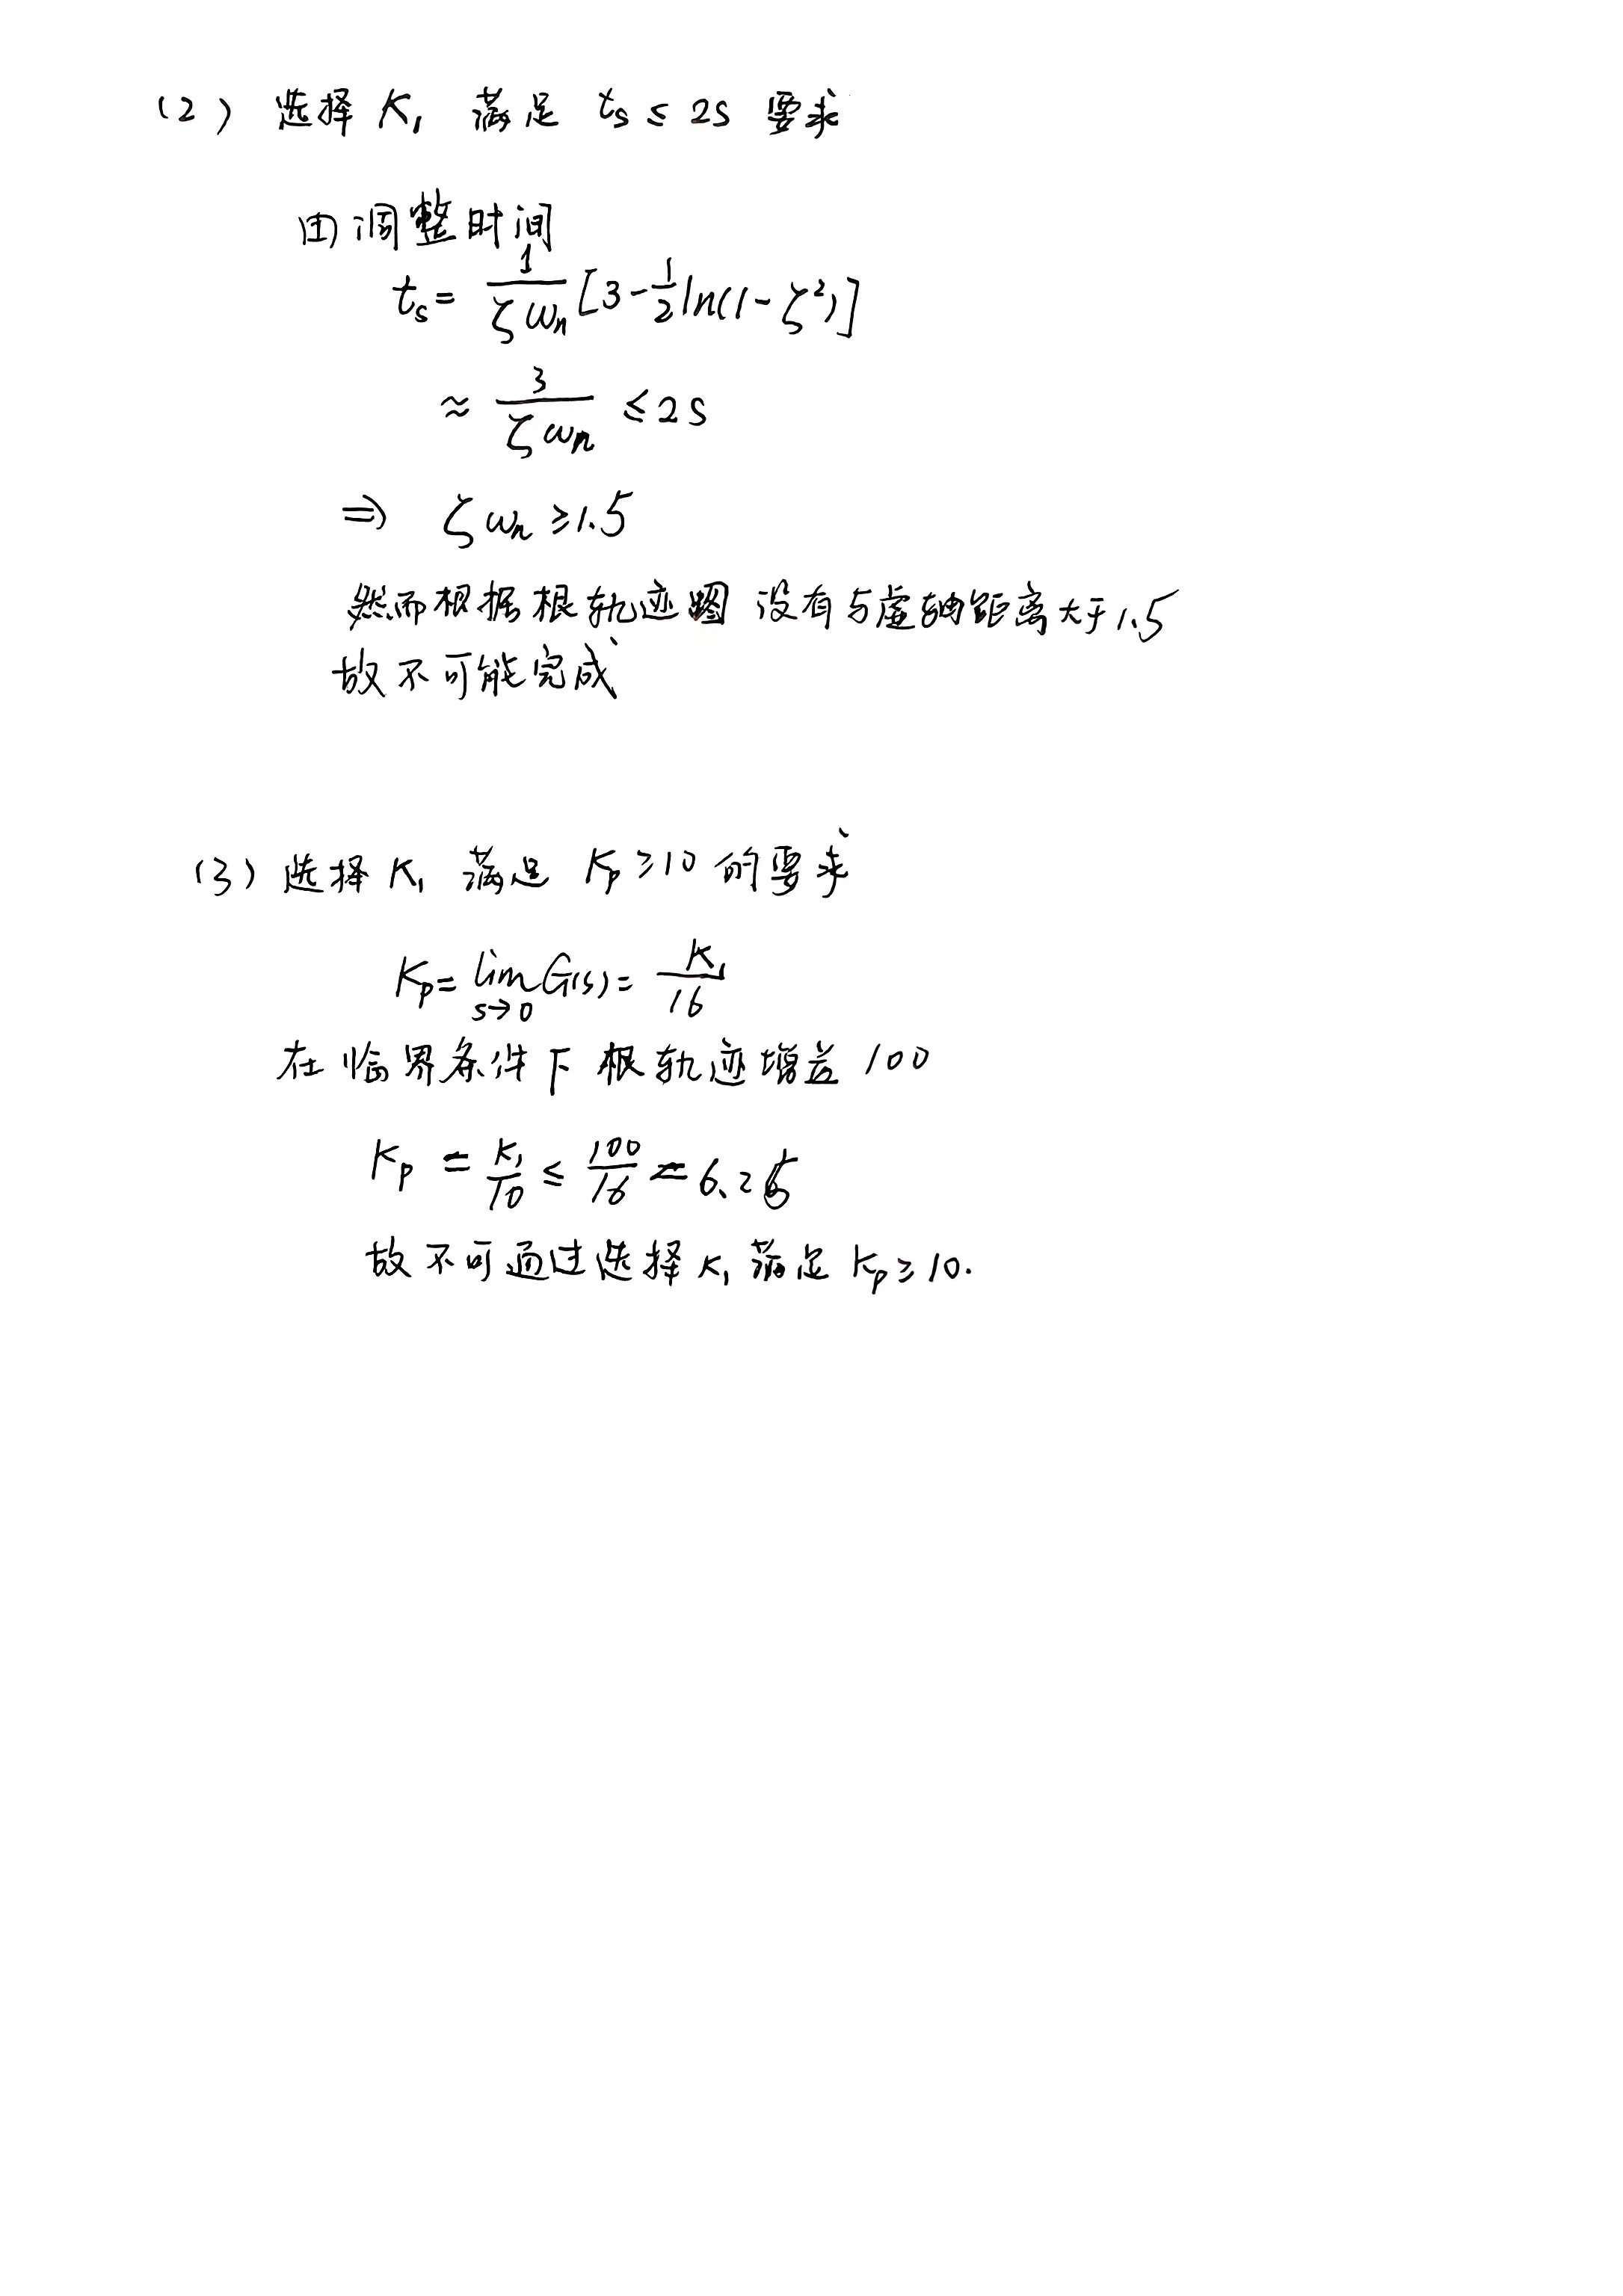 (2) 选择 K₁ 满足 ts ≤ 2s 要求
由调整时间
ts = 1/(ζωn) [3 - 1/2 ln(1 - ζ²)]
≈ 3/(ζωn) ≤ 2s
⇒ ζωn ≥ 1.5
然而根据根轨迹图 没有与虚轴距离大于1.5
故不可能完成
(3) 选择 K₁ 满足 Kp ≥ 10 的要求
Kp = lim s→0 G(s) = K₁/16
在临界条件下 根轨迹增益 100
Kp = K₁/10 ≤ 100/16 = 6.25
故不可通过选择 K₁ 满足 Kp ≥ 10.